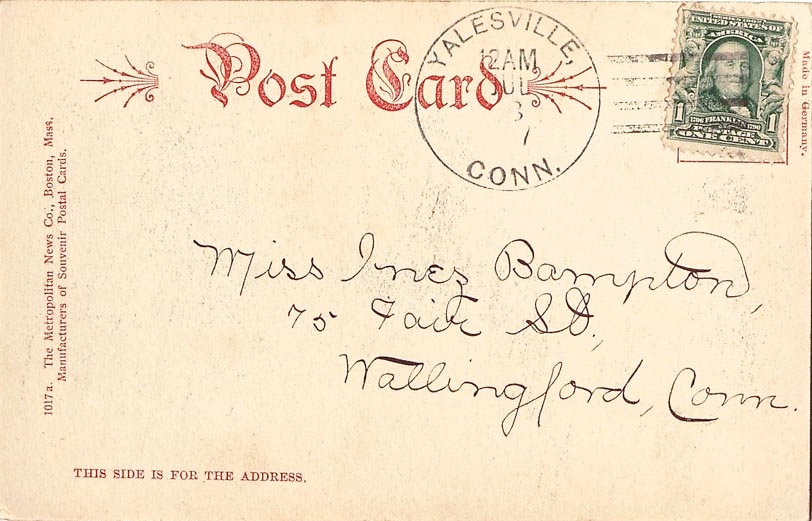 Post Card
YALESVILLE,
12AM
JUL
3
7
CONN.
SERIES 1902
UNITED STATES OF
AMERICA
1706 FRANKLIN 1790
1 POSTAGE 1
ONE CENT
Made in Germany.
1017a. The Metropolitan News Co., Boston, Mass.
Manufacturers of Souvenir Postal Cards.
Miss Inez Bampton,
75 Fair St.
Wallingford, Conn.
THIS SIDE IS FOR THE ADDRESS.